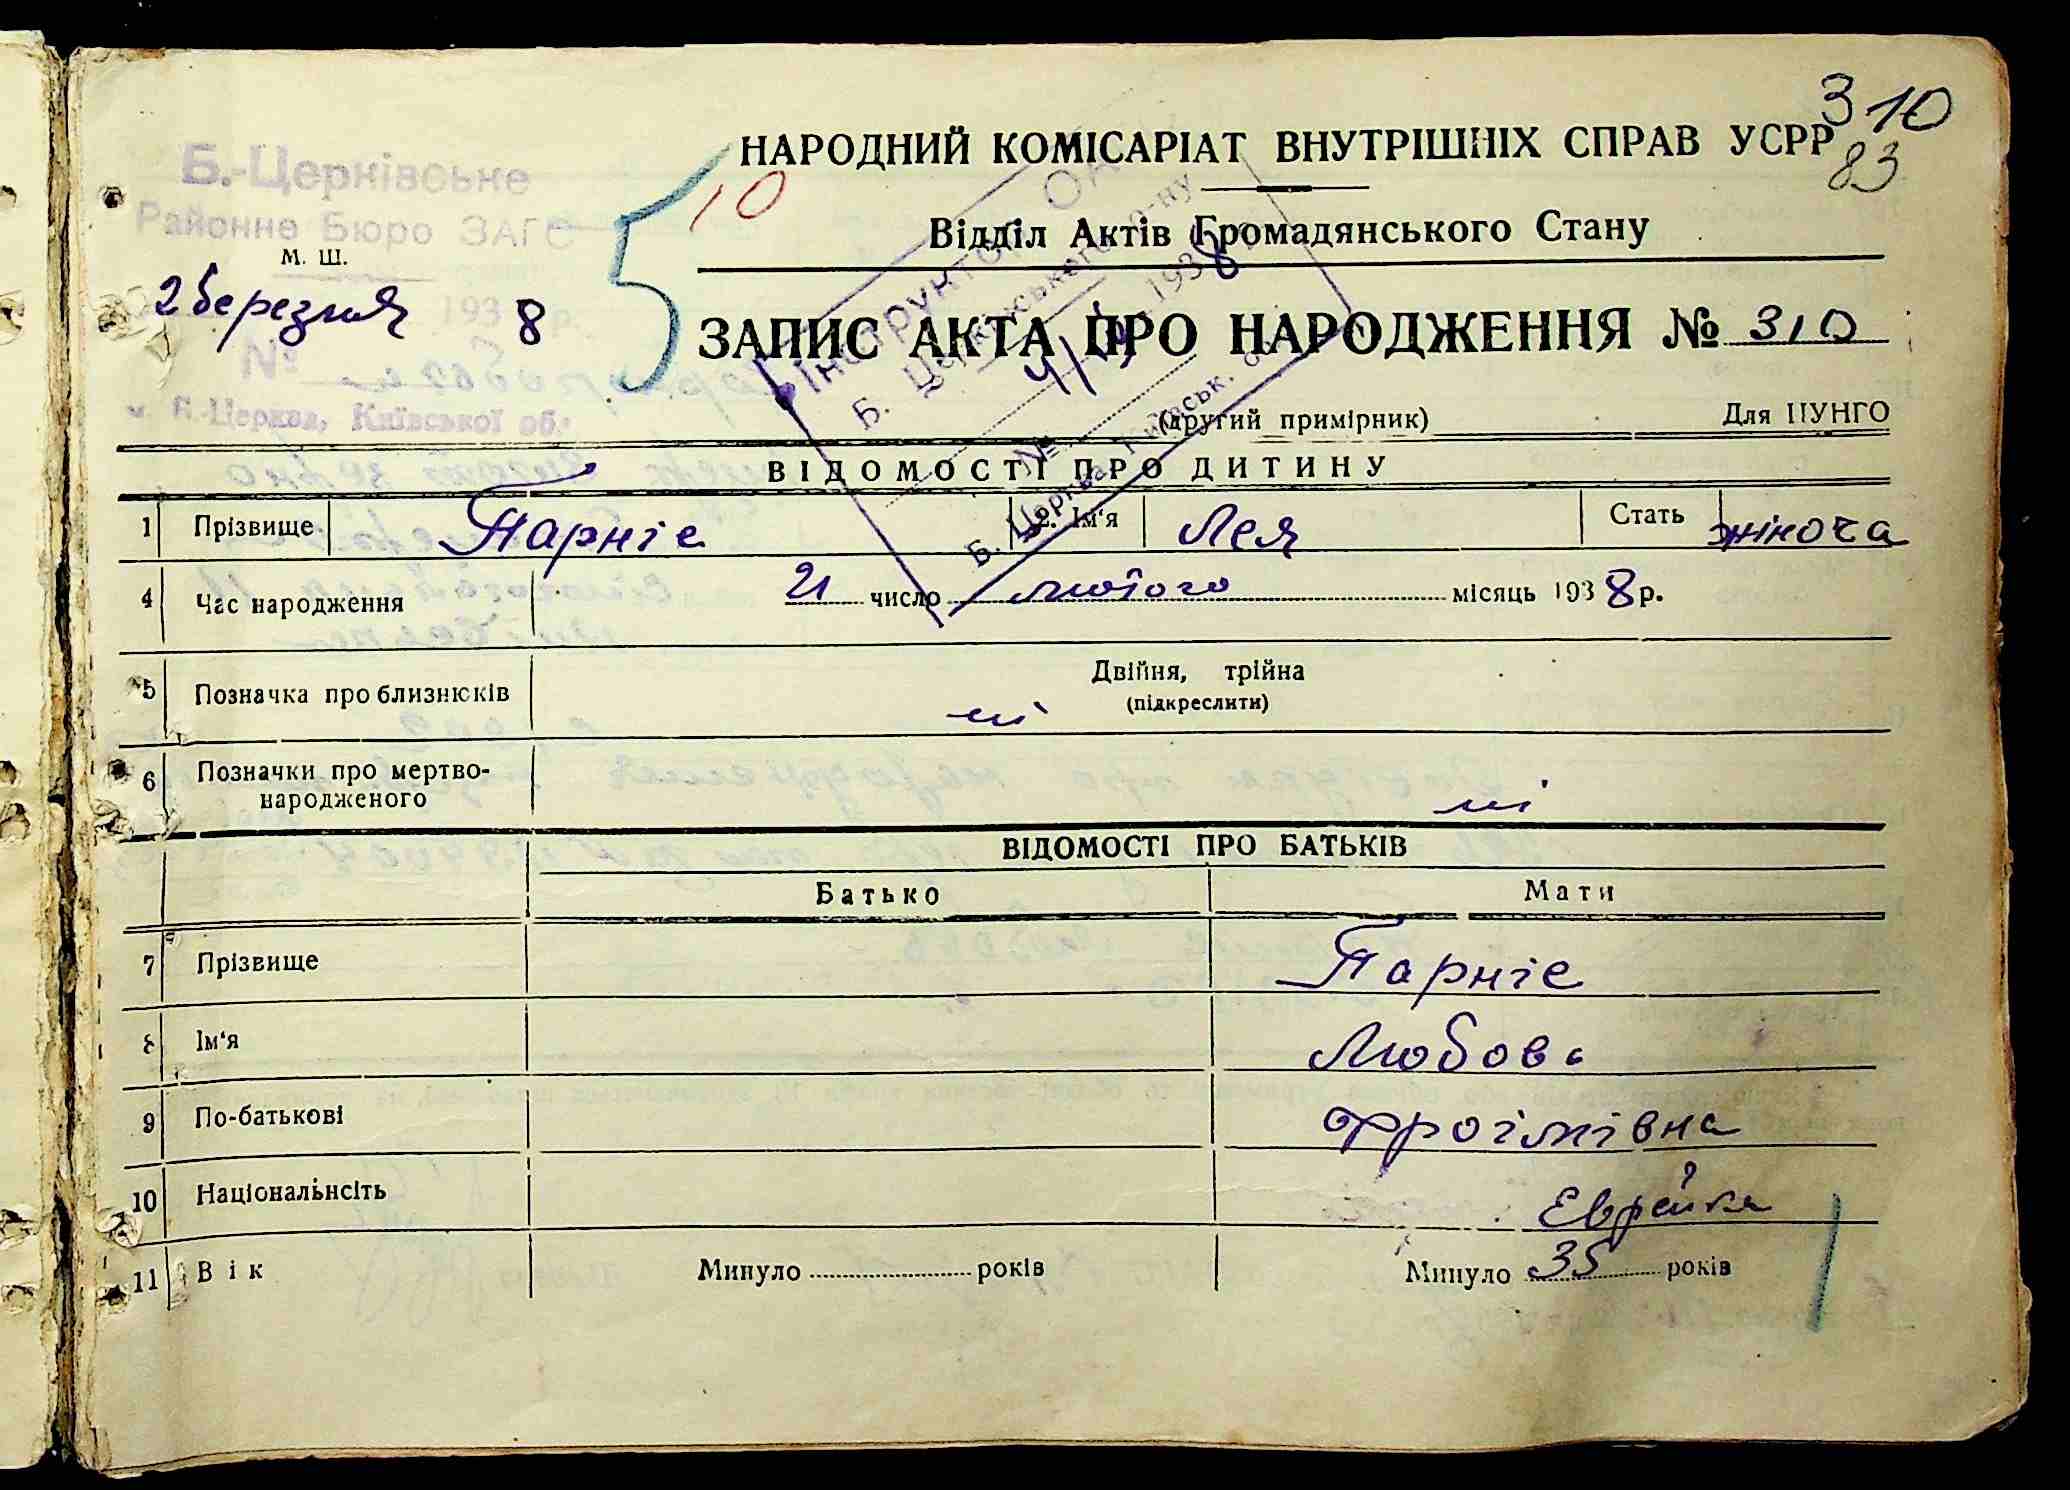 310
83
НАРОДНИЙ КОМІСАРІАТ ВНУТРІШНІХ СПРАВ УСРР
Б.-Церківське
Районне Бюро ЗАГС
10
5
Відділ Актів Громадянського Стану
М. Ш.
2 березня 1938 р.
ЗАПИС АКТА ПРО НАРОДЖЕННЯ № 310
№
м. Б.-Церква, Київської об.
(другий примірник) Для ЦУНГО
Інструктор
Б. Церківського р-ну
1938
№
Б. Церква, Київськ. об.
ВІДОМОСТІ ПРО ДИТИНУ
1 Прізвище Парніс 2. Ім'я Лея Стать жіноча
4 Час народження 21 число лютого місяць 1938 р.
5 Позначка про близнюків Двійня, трійна
(підкреслити)
ні
6 Позначки про мертво-
народженого ні
ВІДОМОСТІ ПРО БАТЬКІВ
Батько Мати
7 Прізвище Парніс
8 Ім'я Любов
9 По-батькові Фроімівна
10 Національнсіть Еврейка
11 Вік Минуло років Минуло 35 років